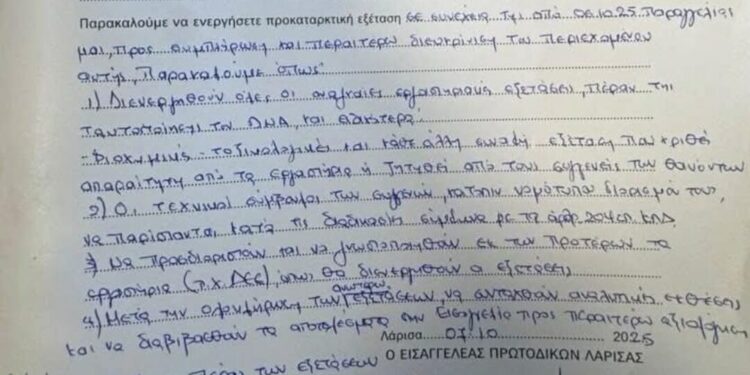 Παρακαλούμε να ενεργήσετε προκαταρκτική εξέταση σε συνέχεια της από 06.10.25 Παραγγελίας
μας, προς συμπλήρωση και περαιτέρω διευκρίνιση του περιεχομένου
αυτής, Παρακαλούμε όπως
1) Διενεργηθούν όλες οι αναγκαίες εργαστηριακές εξετάσεις, πέραν της
ταυτοποίησης του DNA, και ειδικότερα:
- Βιοχημικές - τοξικολογικές και κάθε άλλη συναφή εξέταση που κριθεί
απαραίτητη από το εργαστήριο ή ζητηθεί από τους συγγενείς των θανόντων
2) Οι τεχνικοί σύμβουλοι των συγγενών, κατόπιν νομότυπου διορισμού τους,
να παρίστανται κατά τη διαδικασία σύμφωνα με τα άρθρ. 204 επ. ΚΠΔ
3) Να προσδιοριστούν και να γνωστοποιηθούν εκ των προτέρων τα
εργαστήρια (π.χ ΔΕΕ), όπου θα διενεργηθούν οι εξετάσεις
4) Μετά την ολοκλήρωση των ανωτέρω εξετάσεων, να συνταχθούν αναλυτικές εκθέσεις
και να διαβιβασθούν τα αποτελέσματα στην Εισαγγελία προς περαιτέρω αξιολόγηση
Λάρισα 07.10 2025
Ο ΕΙΣΑΓΓΕΛΕΑΣ ΠΡΩΤΟΔΙΚΩΝ ΛΑΡΙΣΑΣ
των εξετάσεων